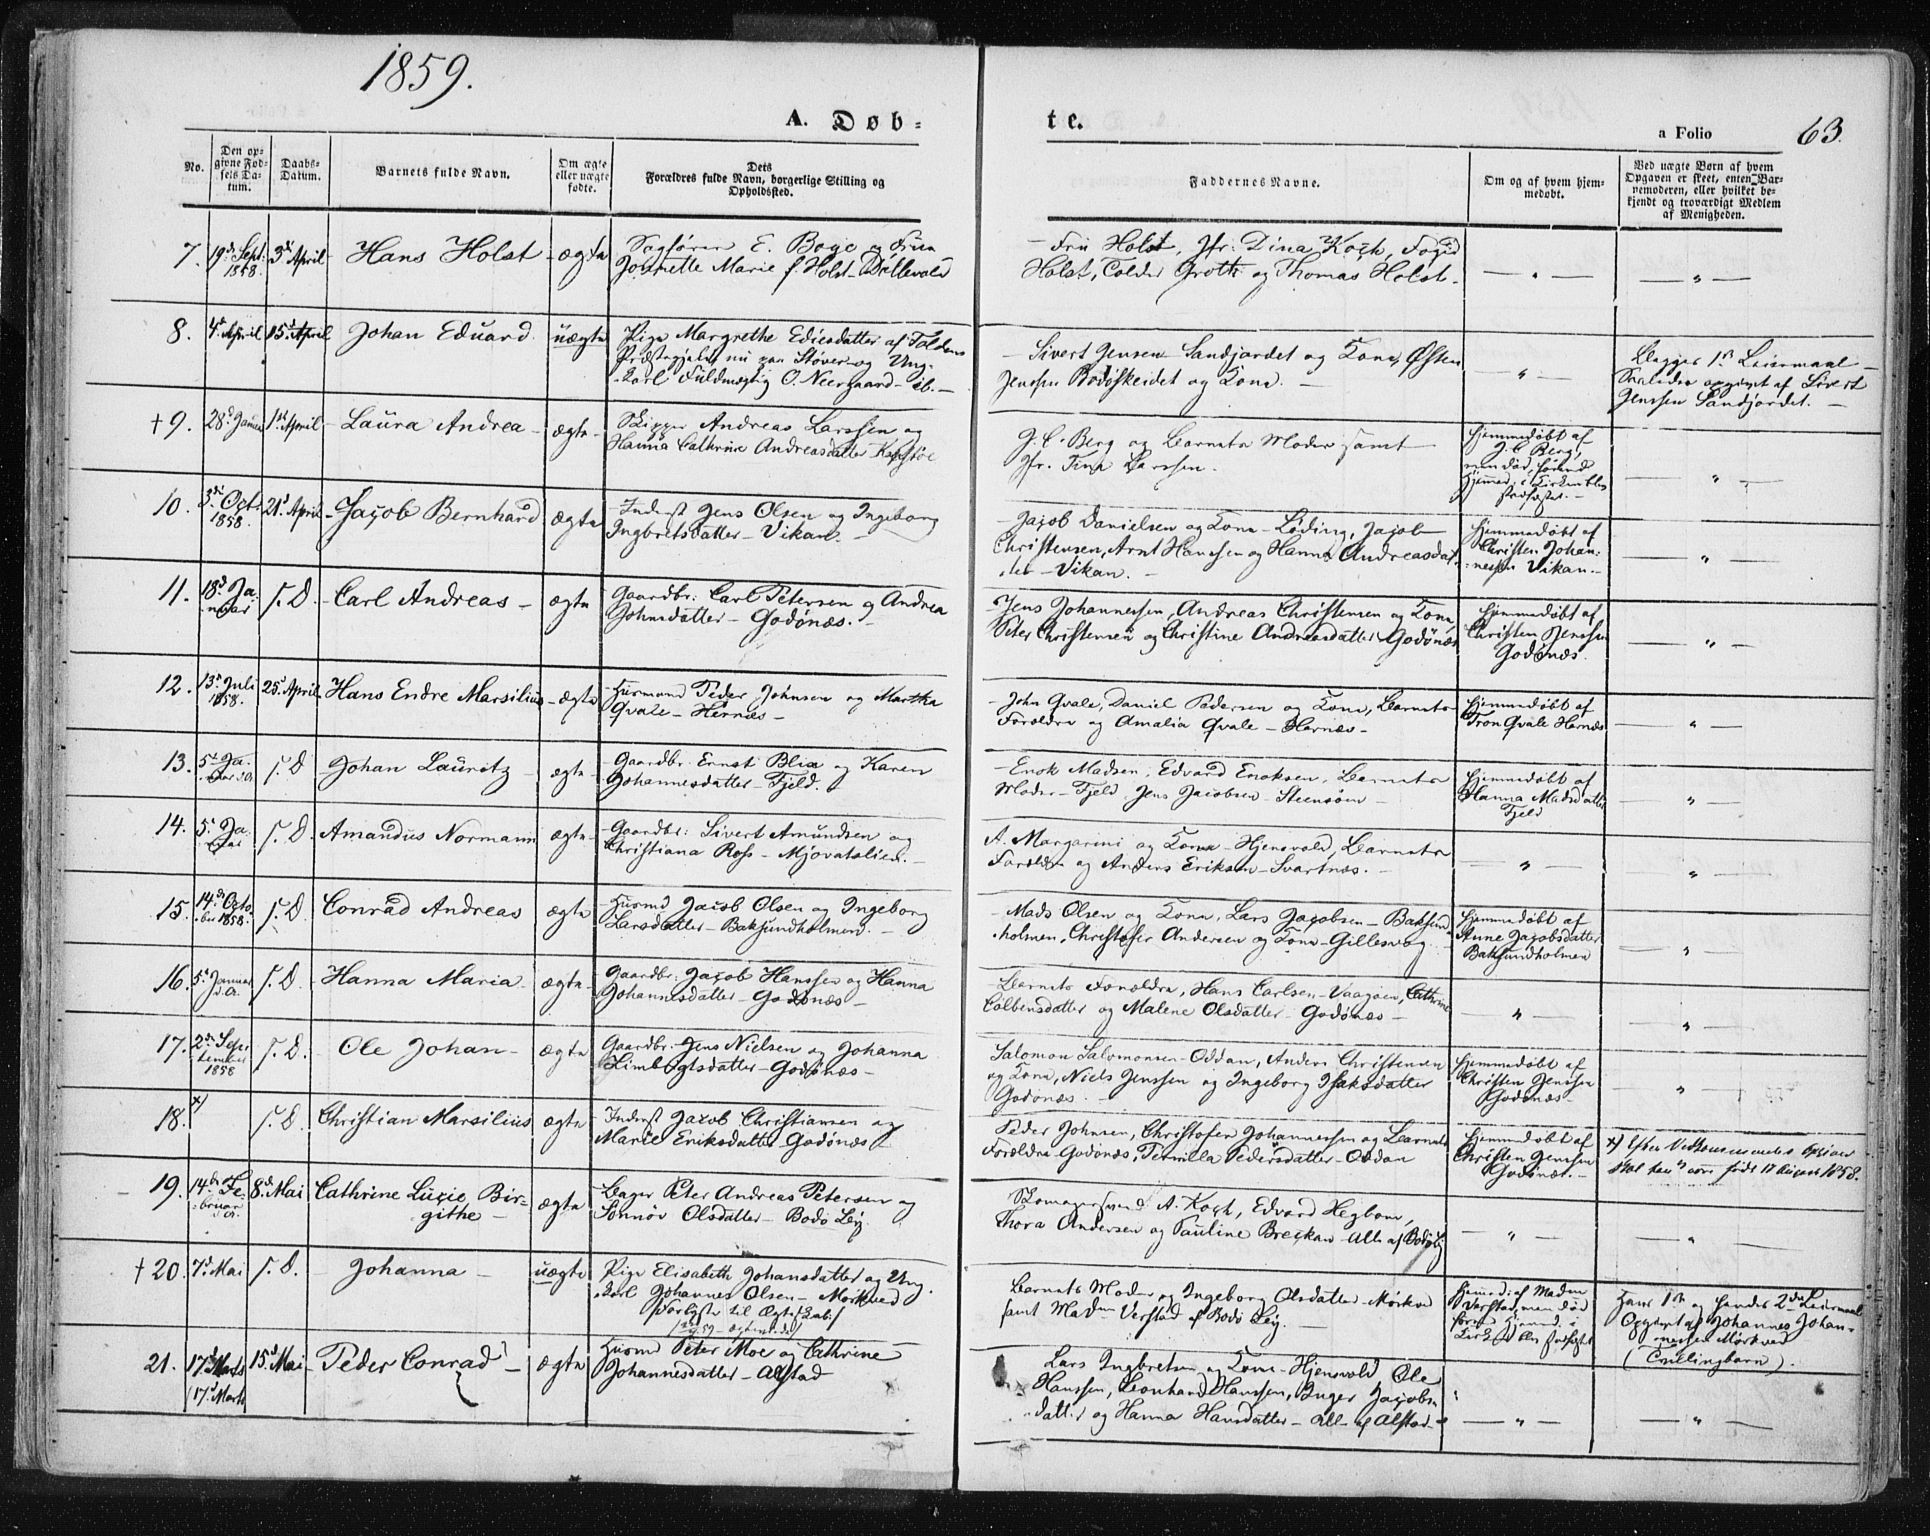 1859.
A. Døb-
te.
a Folio
63.
No.
Den op-
givne Fød-
sels Da-
tum.
Daabs-
Datum.
Barnets fulde Navn.
Om ægte
eller uægte
fødte.
Dets
Forældres fulde Navn, borgerlige Stilling og
Opholdssted.
Faddernes Navne.
Om og af hvem hjem-
medøbt.
Ved uægte Børn af hvem
Opgaven er skeet, enten Bar-
nemoderen, eller hvilket be-
kjendt og troværdigt Medlem
af Menigheden.
7. 19de Sept. 1858. 3de April Hans Holst ægte
Sagfører E. Boge og Frue
Marie f. Holst
Fru Holst, Jfr. Dina Koch, Foged
Holst, Tolder Groth og Thomas Holst.
8. 4de April 15de April Johan Eduard uægte
Pige Margrethe Ediesdatter af Foldens
Præstegjeld nu paa Støver og Ung-
karl Fuldmægtig O. Neergaard ib.
Sivert Jensen Sandjordet og Kone, Østen
Jenssen Bodøskeidet og Kone.
Begges 1ste Leiermaal
Saaledes opgivet af Sivert
Jenssen Sandjordet.
+ 9. 28de Januar 1ste April Laura Andrea ægte
Skipper Andreas Larssen og
Hanna Cathrine Andreasdatter
J. C. Berg og Barnets Moder samt
Jfr. Tina Larssen.
Hjemmedøbt af
J. C. Berg,
men død, førend
Hjemmed. i Kirken blev
stadfæstet.
10. 3de Oct. 1858. 21de April Jacob Bernhard ægte
Inderst Jens Olsen og Ingeborg
Ingbretsdatter - Vikan.
Jacob Danielsen og Kone - Løding, Jacob
Christensen, Arnt Hanssen og Hanna Andreasdat-
ter - Vikan.
Hjemmedøbt af
Christen Johan-
nessen Vikan.
11. 18de Ja-
nuar s. D. Carl Andreas ægte
Gaardbr: Carl Petersen og Andrea
Johnsdatter - Godønæs.
Jens Johannessen, Andreas Christensen og Kone,
Peter Christensen og Christine Andreasdatter Godønæs
Hjemmedøbt af
Christen Jenssen
Godønæs.
12. 13de Juli 1858. 25de April Hans Endre Marsilius ægte
Huusmand Peder Johnsen og Martha
Qvale - Hernæs
John Qvale, Daniel Pedersen og Kone, Barnets
Forældre og Amalia Qvale - Hernæs
Hjemmedøbt af
Tron Qvale Hernæs
13. 5te Ja-
nuar d. A. s. D. Johan Lauritz ægte
Gaardbr: Ernst Blix og Karen
Johannesdatter - Fjeld.
Enok Madsen, Edvard Enoksen, Barnets
Moder - Fjeld, Jens Jacobsen - Steensøen
Hjemmedøbt af
Hanna Madsdatter
Fjeld
14. 5te Ja-
nuar s. D. Amandus Normann ægte
Gaardbr: Sivert Amundsen og
Christiana Ross - Mjovatslien.
A. Margarini og Kone - Hjensvold, Barnets
Forældre og Anders Eriksen - Svartnæs.
15. 14de Octo-
ber 1858. s. D. Conrad Andreas ægte
Huusmd Jacob Olsen og Ingeborg
Larsdatter - Baksundholmen.
Mads Olsen og Kone, Lars Jacobsen - Baksund-
holmen, Christofer Andersen og Kone - Gillesvog
Hjemmedøbt af
Anne Jacobsdatter
Baksundholmen
16. 5te Januar d. A. s. D. Hanna Maria ægte
Gaardbr: Jacob Hanssen og Hanna
Johannesdatter - Godønæs
Barnets Forældre, Hans Carlsen - Vaagøen, Cathrine
Colbensdatter og Malene Olsdatter - Godønæs
17. 2den Sep-
tember 1858 s. D. Ole Johan ægte
Gaardbr. Jens Nielsen og Johanna
- Godønæs
Salomon Salomonsen - Oddan, Anders Christensen
og Kone, Niels Jenssen og Ingeborg Isaksdatter
Godønæs.
Hjemmedøbt af
Christen Jenssen
Godønæs
18. x) s. D. Christian Marsilius ægte
Inderst Jacob Christiansen og
Marie Eriksdatter Godønæs
Peder Johnsen, Christofer Johannessen og Barnets
Forældre - Godønæs, Pernilla Pedersdatter - Oddan
Hjemmedøbt af
Christen Jenssen
Godønæs.
x) Efter Vedkommendes Opgivende
skal han være født 17 August 1858.
19. 14de Fe-
bruar d. A. 8de Mai Cathrine Lucie Bir-
githe ægte
Bager Peter Andreas Petersen og
Sønnøv Olsdatter - Bodø By
Skomagersvend A. Kogt, Edvard Hegbom,
Thora Andersen og Pauline Breckan - Alle af Bodø By
+ 20. 7de Mai s. D. Johanna uægte
Pige Elisabeth Johansdatter og Ung-
karl Johannes Olsen - Mørkved
(Forlyste til Ægteskab)
Barnets Moder og Ingeborg Olsdatter - Mørkved
samt Madm Verstad af Bodø By.
Hjemmed. af Madm
Verstad, men død
førend Hjemmed. i
Kirken blev stadfæstet
Hans 1ste og hendes 2det Leiermaal
Opgivet af Johannes Johan-
nessen Mørkved
(Tvillingbarn).
21. 17de Marts
/17de Marts 15de Mai Peder Conrad ægte
Huusmd Peter Moe og Cathrine
Johannesdatter - Alstad
Lars Ingbretsen og Kone - Hjensvold, Ole
Hanssen, Leonhard Hanssen, Inger Jacobs-
datter og Hanna Hansdatter - alle af Alstad